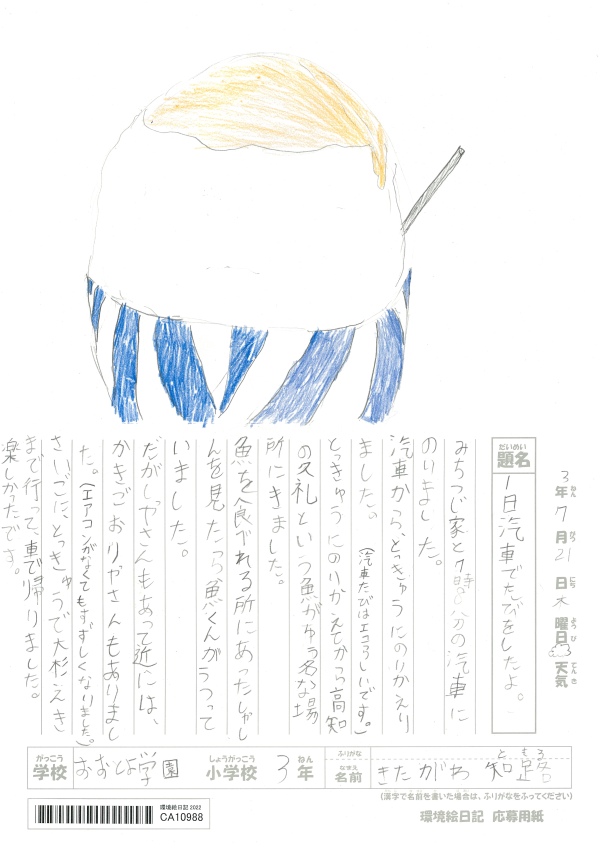 3年7月21日木曜日 天気
ねん がつ にち ようび てんき
だいめい
題名
1日汽車でたびをしたよ。
みちつじ家と7時8分の汽車に
のりました。
汽車から、とっきゅうにのりかえり
ました。(汽車たびはエコろしいです。)
とっきゅうにのりかえてから高知
の久礼という魚がゆう名な場
所にきました。
魚を食べれる所にあったしゃし
んを見たら魚くんがうつって
いました。
だがしやさんもあって近には、
かきごおりやさんもありまし
た。(エアコンがなくてもすずしくなりました。)
さいごに、とっきゅうで大杉えき
まで行って、車で帰りました。
楽しかったです。
がっこう しょうがっこう ねん ふりがな ともろ
学校 おおとよ学園 小学校 3年 なまえ 名前 きたがわ 知路
(漢字で名前を書いた場合は、ふりがなをふってください)
環境絵日記 2022
CA10988
環境絵日記 応募用紙